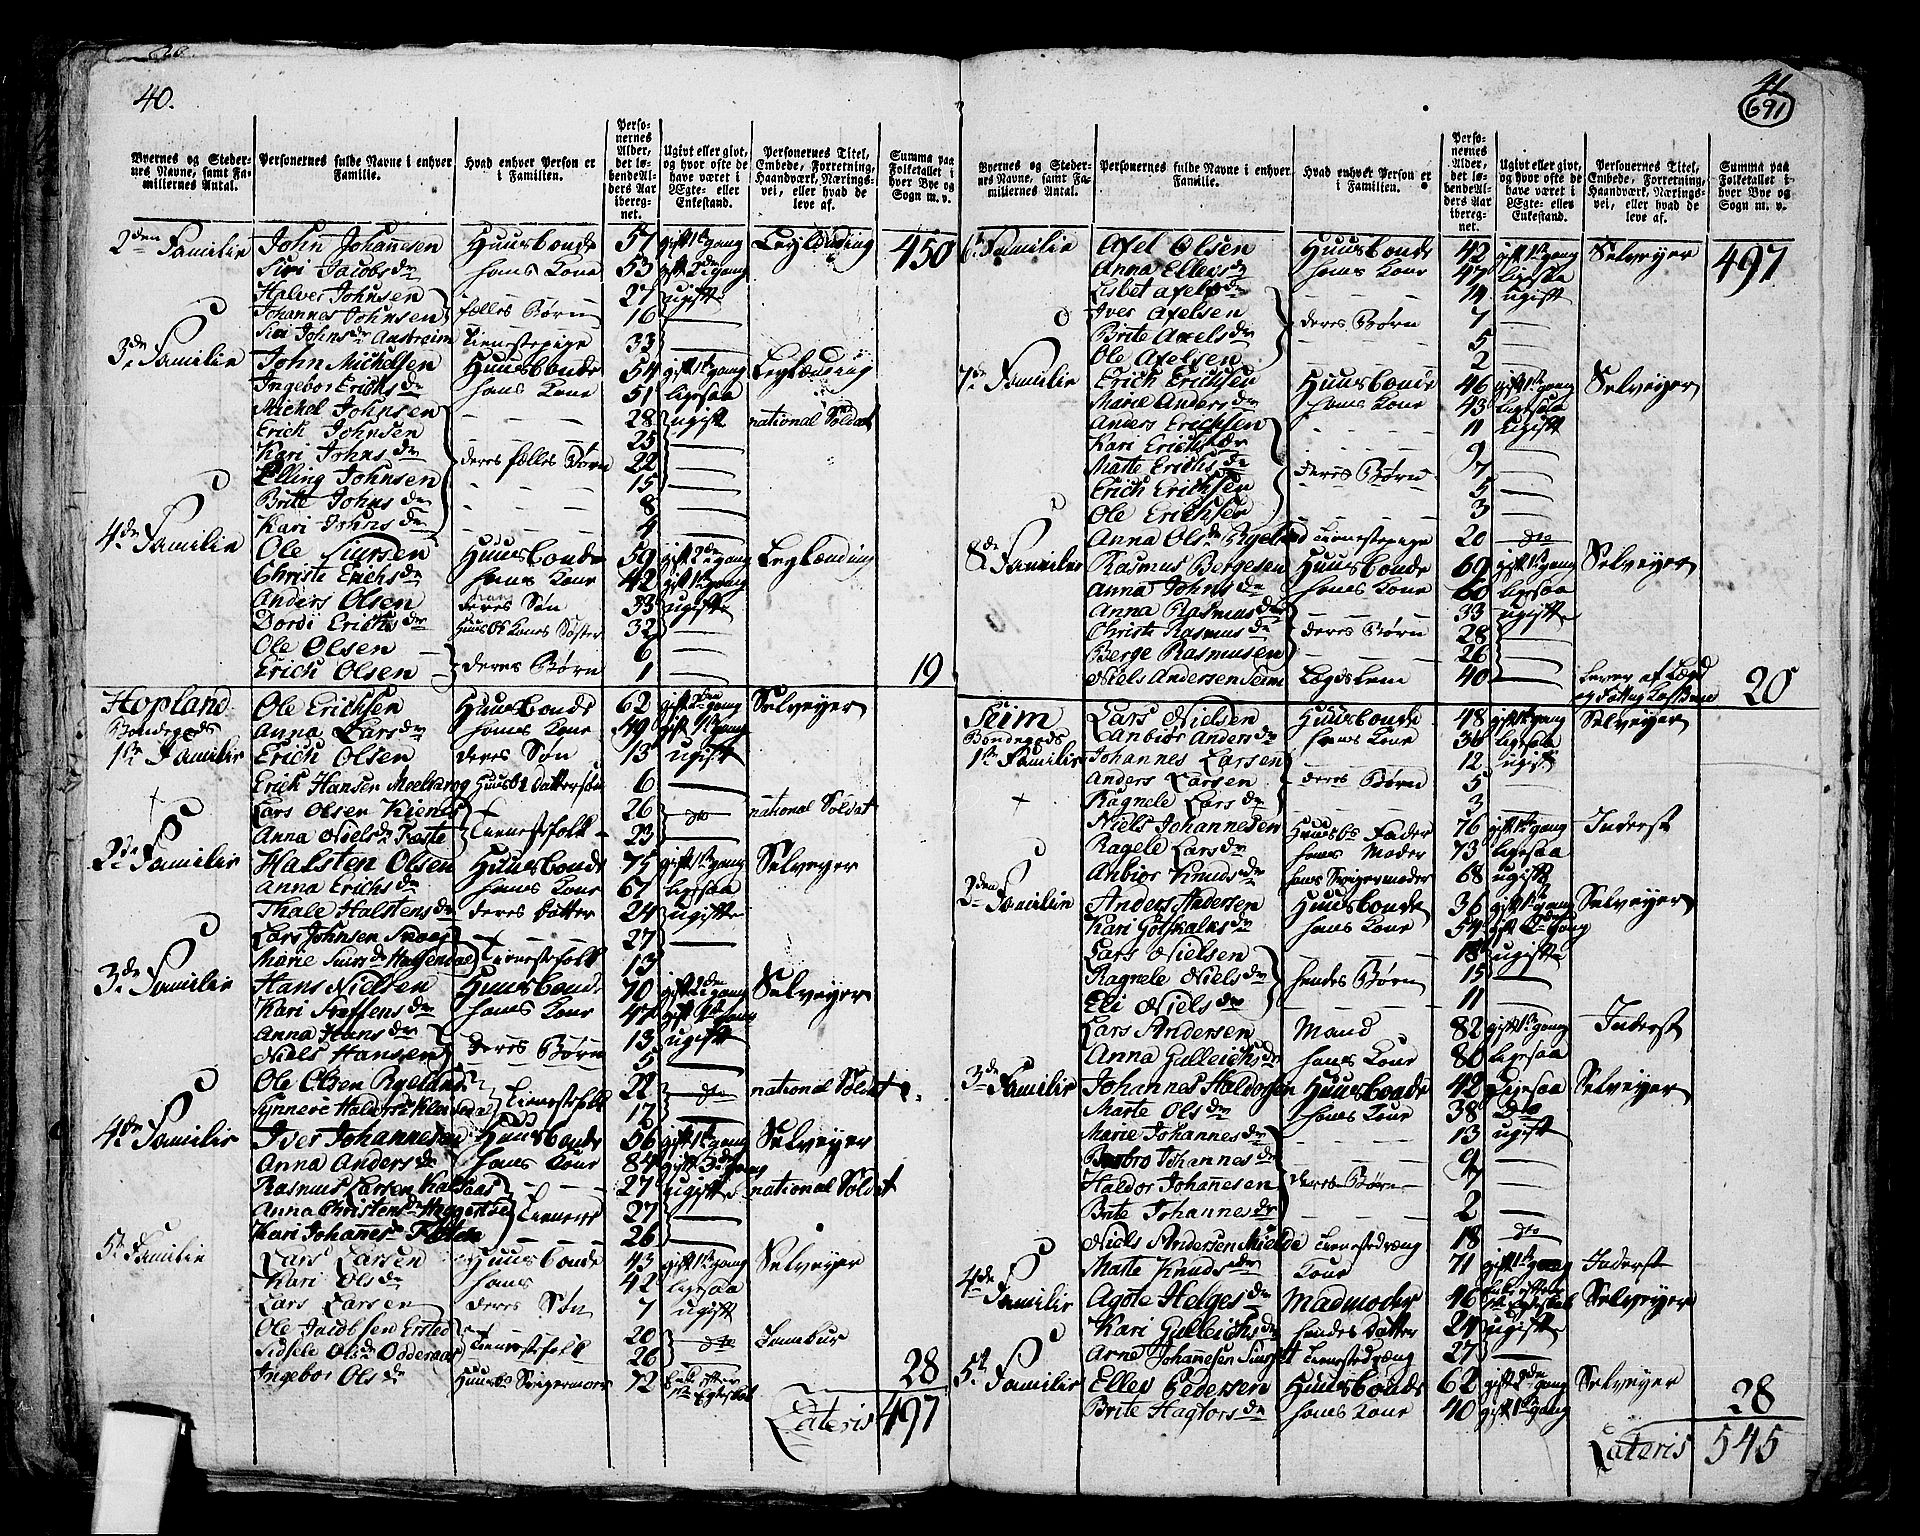 40.
Byernes og Steder-
nes Navne, samt Fa-
miliernes Antal.
Personernes fulde Navne i enhver
Familie.
Hvad enhver Person er
i Familien.
Perso-
nernes
Alder,
det lø-
bende Al-
ders Aar
iberegn-
net.
Ugivt eller givt,
og hvor ofte de
have været i
Ægte- eller
Enkestand.
Personernes Titel,
Embede, Forretning,
Haandværk, Nærings-
vei, eller hvad de
leve af.
Summa paa
Folketallet i
hver Bye og
Sogn m. v.
2den Familie John Johannesen Huusbonde 57 gift 1ste gang Leylænding 450
Siri Jacobsdr hans Kone 53 gift 2den gang
Halver Johnsen 27 ugift
Johannes Johnsen fælles Børn 16 —
Siri Johnsdr Austreim Tienestepige 33 —
3de Familie John Michelsen Huusbonde 54 gift 1ste gang Leylænding
Ingebor Erichsdr hans Kone 51 ligesaa
Michel Johnsen 28 ugift national Soldat
Erich Johnsen 25 —
Kari Johnsdr deres fælles Børn 22 —
Elling Johnsen 15 —
Brite Johnsdr 8 —
Kari Johnsdr 4 —
4de Familie Ole Siursen Huusbonde 59 gift 2den gang Leylænding
Christi Erichsdr hans Kone 42 gift 1ste gang
Anders Olsen deres Søn 33 ugift
Dordi Erichsdr Huusb. Kones Søster 32 —
Ole Olsen 6 —
Erich Olsen deres Børn 1 — 19
Hopland Ole Erichsen Huusbonde 62 gift 2den gang Selveyer
Bondegods Anna Larsdr hans Kone 49 gift 1ste gang
1ste Familie Erich Olsen deres Søn 13 ugift
Erich Hansen Meelkrog Huusb. Dattersøn 6 —
Lars Olsen Kienes 26 do national Soldat
Anna Nielsdr Tæste Tienestefolk 23 —
2de Familie Halsten Olsen Huusbonde 75 gift 1ste gang Selveyer
Anna Erichsdr hans Kone 67 ligesaa
Thale Halstensdr deres Datter 24 ugift
Lars Johnsen 27 —
Marie Siursdr Tienestefolk 13
3de Familie Hans Nielsen Huusbonde 70 gift 2den gang Selveyer
Kari Steffensdr hans Kone 47 gift 1ste gang
Anna Hansdr 13 ugift
Niels Hansen deres Børn 5 —
Ole Olsen Ryeland 22 do national Soldat
Synneve Haldorsdr Tienestefolk 17 —
4de Familie Iver Johannesen Huusbonde 56 gift 1ste gang Selveyer
Anna Andersdr hans Kone 84 gift 3de gang
Rasmus Larsen Kalsaas 27 ugift national Soldat
Anna Christensdr Tienere 27 —
Kari Johannesdr 26 —
5te Familie Lars Larsen Huusbonde 43 gift 1ste gang Selveyer
Kari Olsdr hans 42 ligesaa
Lars Larsen deres Søn 7 ugift
Ole Jacobsen Ersted 20 do Tambur
Sidsele Olsdr Tienestefolk 26 —
Ingebor Olsdr Huusb. Svigermoer 72 Enke efter 1ste Egteskab 28
Lateris 497
41
691
Byernes og Steder-
nes Navne, samt Fa-
miliernes Antal.
Personernes fulde Navne i enhver
Familie.
Hvad enhver Person er
i Familien.
Perso-
nernes
Alder,
det lø-
bende Al-
ders Aar
iberegn-
net.
Ugivt eller givt,
og hvor ofte de
have været i
Ægte- eller
Enkestand.
Personernes Titel,
Embede, Forretning,
Haandværk, Nærings-
vei, eller hvad de
leve af.
Summa paa
Folketallet i
hver Bye og
Sogn m. v.
6te Familie Axel Olsen Huusbonde 42 gift 1ste gang Selveyer 497
Anna Ellevsdr hans Kone 47 ligesaa
Lisbet Axelsdr 14 ugift
Iver Axelsen deres Børn 7 —
Brite Axelsdr 5 —
Ole Axelsen 2 —
7de Familie Erich Erichsen Huusbonde 46 gift 1ste gang Selveyer
Marie Andersdr hans Kone 43 ligesaa
Anders Erichsen 11 ugift
Kari Erichsdr 9 —
Marte Erichsdr deres Børn 7 —
Erich Erichsen 5 —
Ole Erichsen 3 —
Anna Olsdr Ryeland Tienestepige 20 do
8de Familie Rasmus Bergesen Huusbonde 69 gift 1ste gang Selveyer
Anna Johnsdr hans Kone 60 ligesaa
Anna Rasmusdr 33 ugift
Christi Rasmusdr deres Børn 28 —
Berge Rasmusen 26 —
Niels Andersen Seim Lægdslem 40 — Lever af Lægd og Fattig Cassen 20
Seim Lars Nielsen Huusbonde 48 gift 1ste gang Selveyer
Bondegods Anbior Andersdr hans Kone 36 ligesaa
1ste Familie Johannes Larsen 12 ugift
Anders Larsen deres Børn 5 —
Ragnele Larsdr 3 —
Niels Johannesen Huusb. Fader 76 gift 1ste gang Inderst
Ragele Larsdr hans Moder 73 ligesaa
Anbior Knudsdr hans Svigermoder 68 ugift
2den Familie Anders Andersen Huusbonde 36 gift 1ste gang Selveyer
Kari Gotskalksdr hans Kone 54 gift 2den gang
Lars Nielsen 18 ugift
Ragnele Nielsdr hendes Børn 15 —
Eli Nielsdr 11 —
Lars Andersen Mand 82 gift 1ste gang Inderst
Anna Gulleichsdr hans Kone 86 ligesaa
3de Familie Johannes Haldorsen Huusbonde 42 Ligesaa Selveyer
Marte Olsdr hans Kone 38 Do
Marie Johannesdr 13 ugift
Johannesdr 9 —
Haldor Johannesen deres Børn 4 —
Brite Johannesdr 2 —
Niels Andersen Mielde Tienestedræng 18 do
Matte Knudsdr Kone 71 gift 1ste gang Inderst
4de Familie Agote Helgesdr Madmoder 46 Enke efter 1ste Egteskab Selveyer
Kari Gulleichsdr hendes Datter 24 ugift
Arne Johannesen Tienestedræng 27 —
5te Familie Ellev Pedersen Huusbonde 62 gift 2den gang Selveyer
Brite Hagtorsdr hans Kone 40 gift 1ste gang 28
Lateris 545